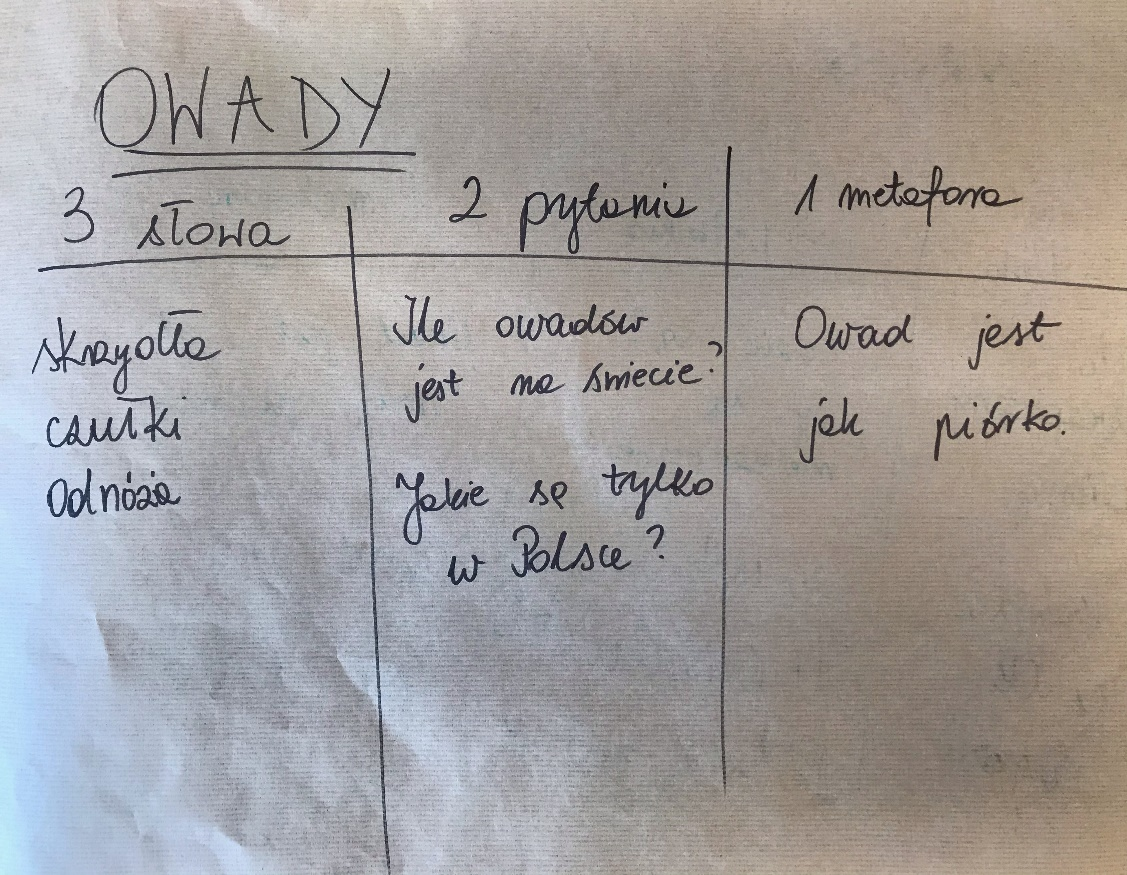 OWADY
3 słowa
2 pytania
1 metafora
skrzydła
czułki
Odnóża
Ile owadów
jest na świecie?
Jakie są tylko
w Polsce?
Owad jest
jak piórko.